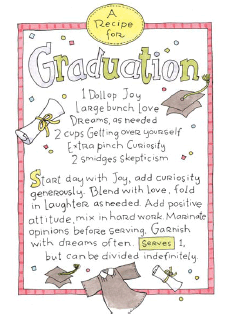 A
Recipe
for
Graduation
1 Dollop Joy
Large bunch Love
Dreams, as needed
2 cups Getting over yourself
Extra pinch Curiosity
2 smidges Skepticism
Start day with Joy, add curiosity
generously. Blend with love, fold
in laughter as needed. Add positive
attitude, mix in hard work. Marinate
opinions before serving. Garnish
with dreams often. Serves 1,
but can be divided indefinitely.